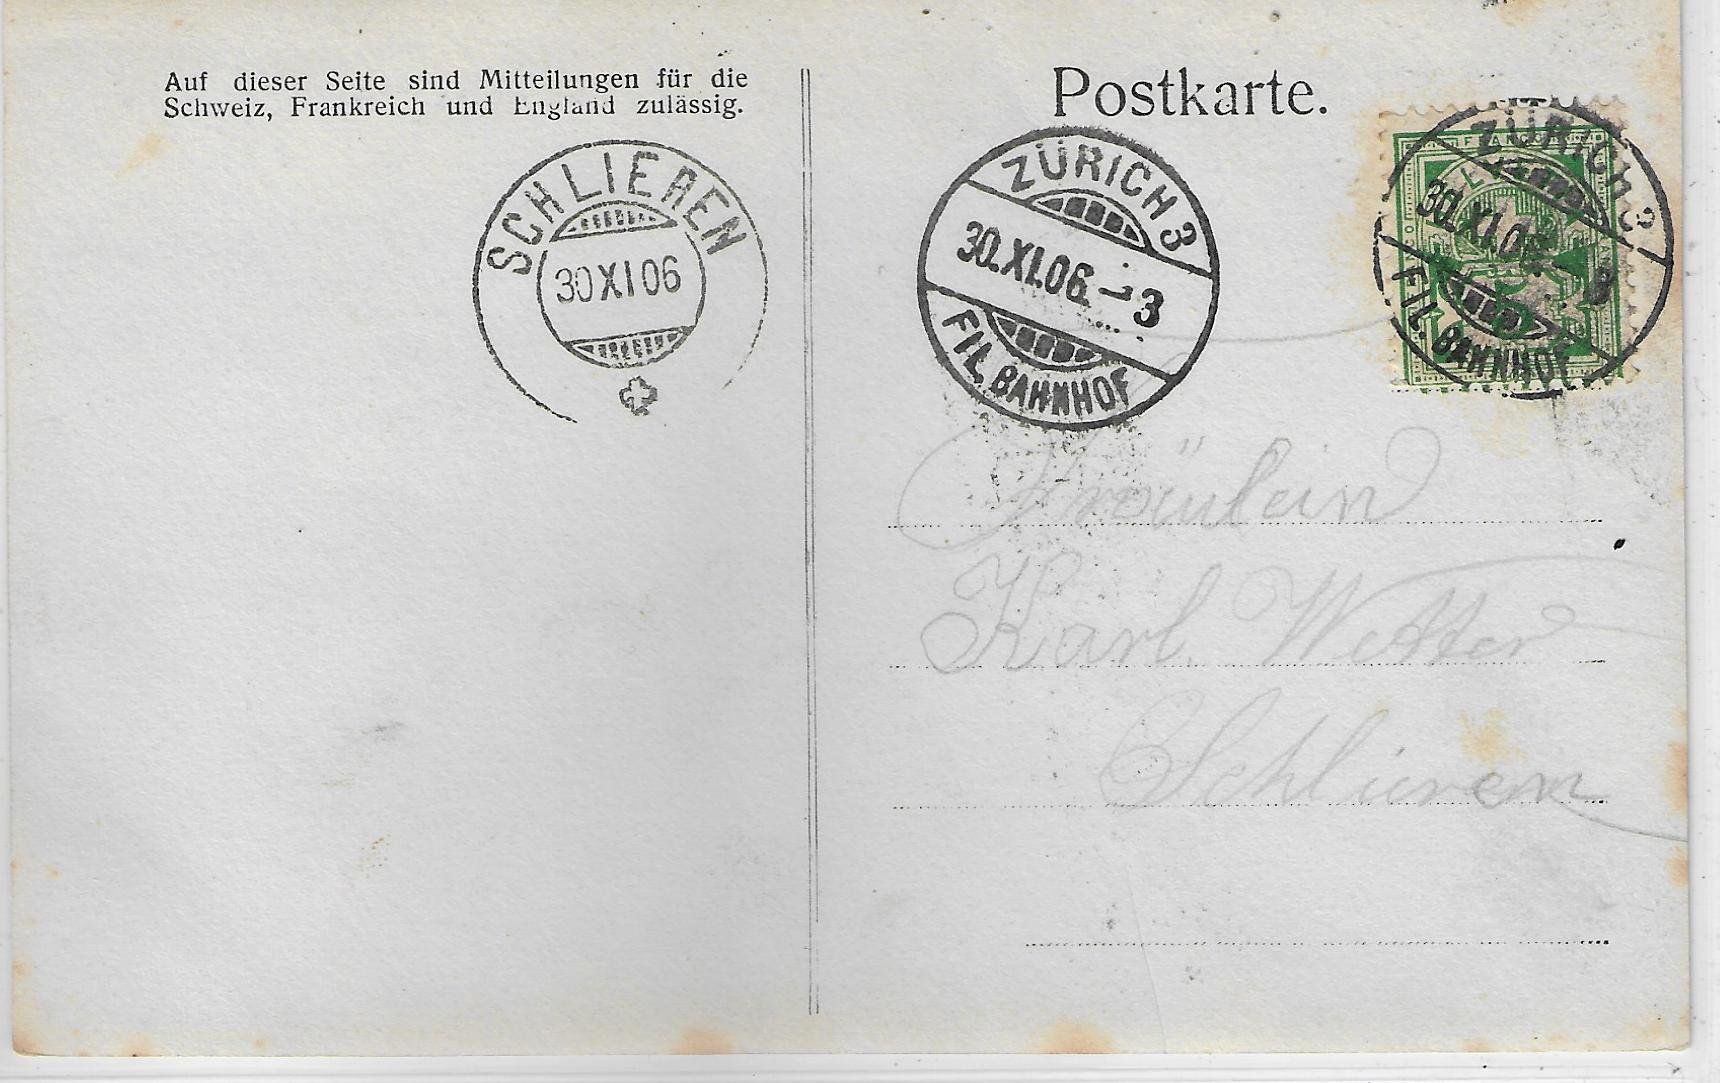 Auf dieser Seite sind Mitteilungen für die
Schweiz, Frankreich und England zulässig.
Postkarte.
SCHLIEREN
30 XI 06
ZÜRICH 3
30.XI.06.-3
FIL. BAHNHOF
ZÜRICH 3
30.XI.06.-3
FIL. BAHNHOF
FRANCO
Fräulein
Karl. Wetter
Schlieren